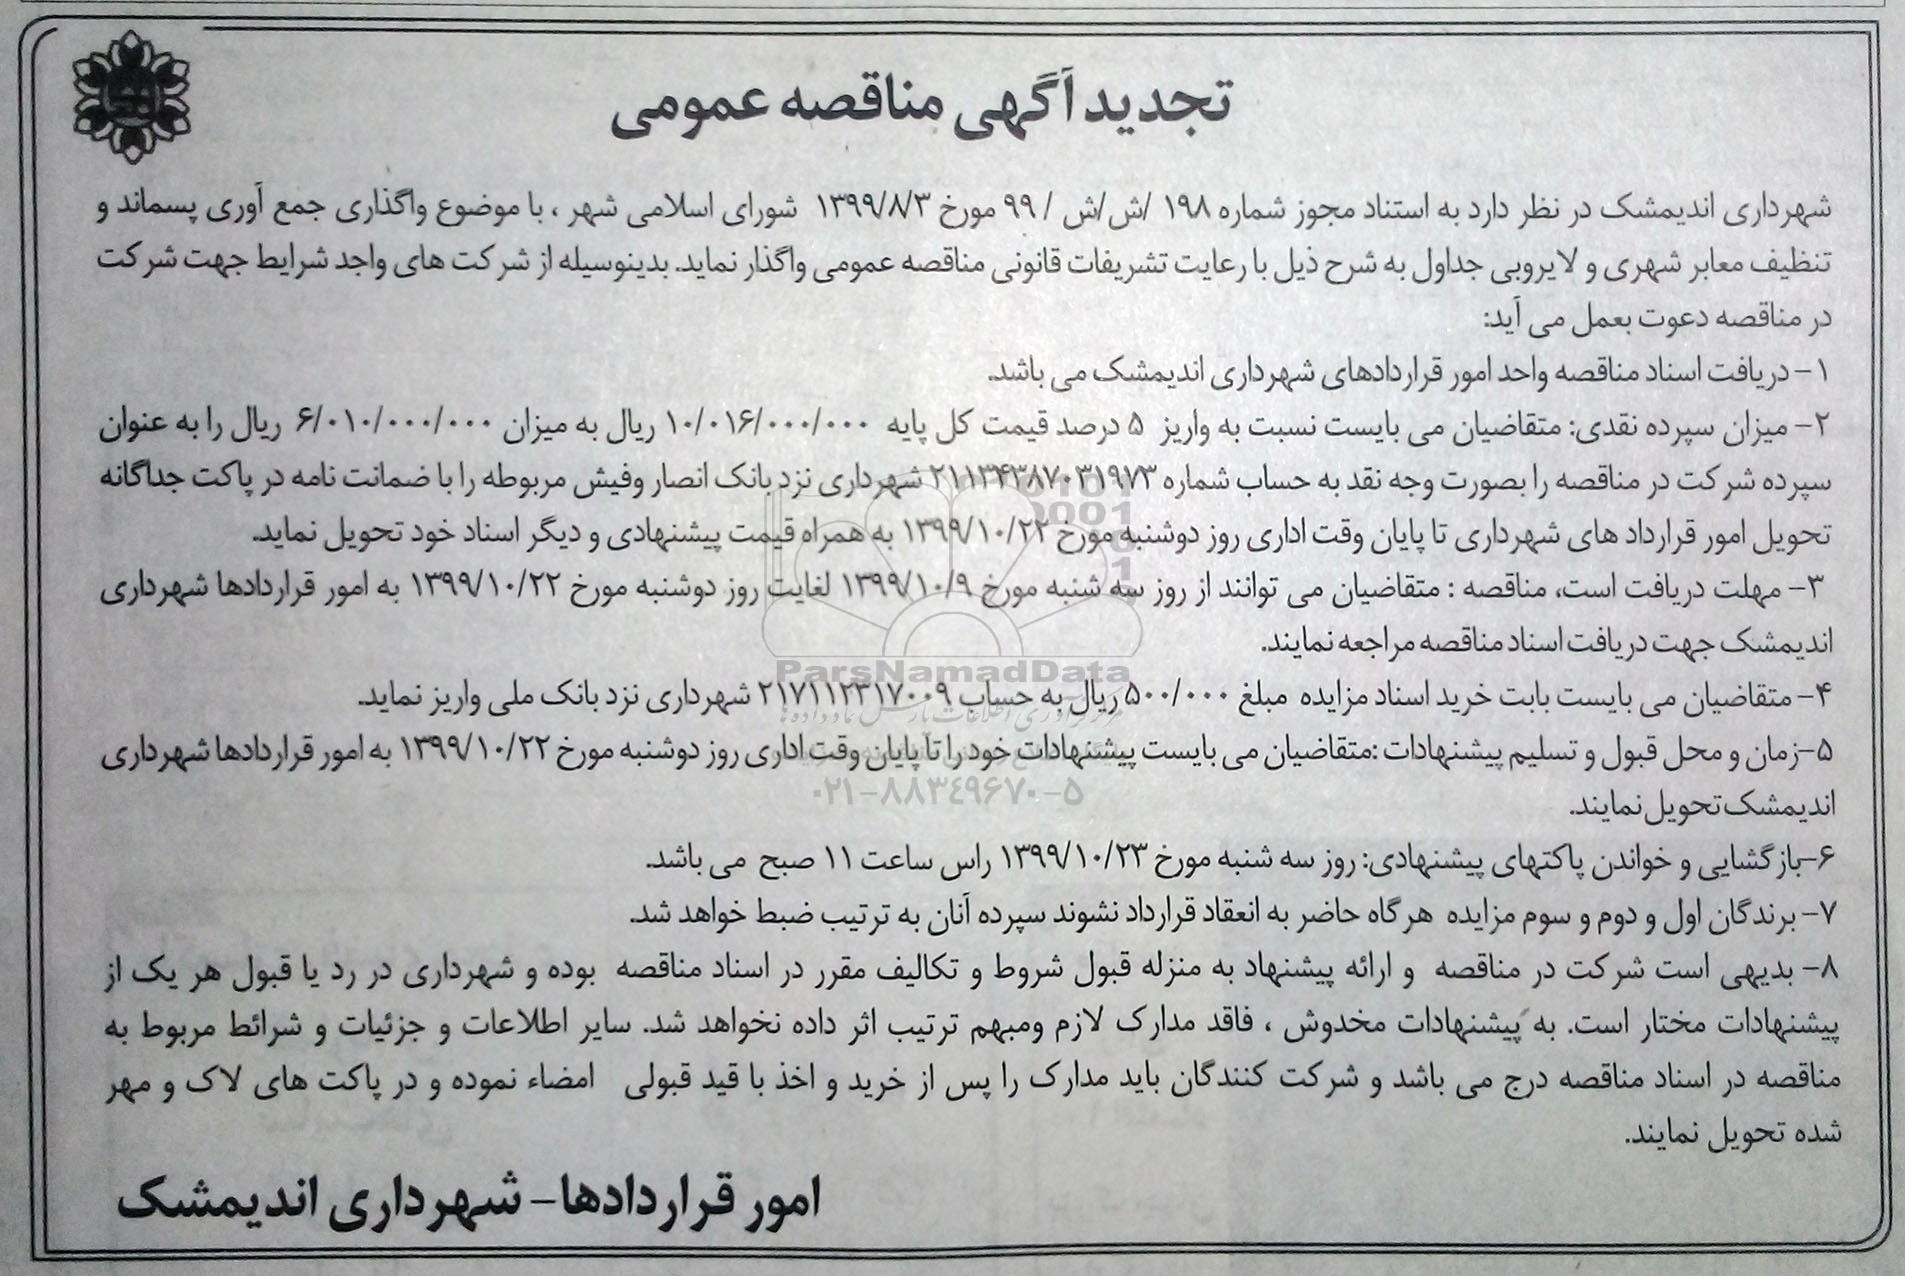 تجدید آگهی مناقصه عمومی
شهرداری اندیمشک در نظر دارد به استناد مجوز شماره ۱۹۸ /ش/ش / ۹۹ مورخ ۱۳۹۹/۸/۳ شورای اسلامی شهر ، با موضوع واگذاری جمع آوری پسماند و
تنظیف معابر شهری و لایروبی جداول به شرح ذیل با رعایت تشریفات قانونی مناقصه عمومی واگذار نماید. بدینوسیله از شرکت های واجد شرایط جهت شرکت
در مناقصه دعوت بعمل می آید:
۱- دریافت اسناد مناقصه واحد امور قراردادهای شهرداری اندیمشک می باشد.
۲- میزان سپرده نقدی: متقاضیان می بایست نسبت به واریز ۵ درصد قیمت کل پایه ۱۰/۰۱۶/۰۰۰/۰۰۰ ریال به میزان ۶/۰۱۰/۰۰۰/۰۰۰ ریال را به عنوان
سپرده شرکت در مناقصه را بصورت وجه نقد به حساب شماره ۲۱۱۳۴۳۸۷۰۳۱۹۷۳ شهرداری نزد بانک انصار وفیش مربوطه را با ضمانت نامه در پاکت جداگانه
تحویل امور قرارداد های شهرداری تا پایان وقت اداری روز دوشنبه مورخ ۱۳۹۹/۱۰/۲۲ به همراه قیمت پیشنهادی و دیگر اسناد خود تحویل نماید.
۳- مهلت دریافت است، مناقصه : متقاضیان می توانند از روز سه شنبه مورخ ۱۳۹۹/۱۰/۹ لغایت روز دوشنبه مورخ ۱۳۹۹/۱۰/۲۲ به امور قراردادها شهرداری
اندیمشک جهت دریافت اسناد مناقصه مراجعه نمایند.
ParsNamadData
۴- متقاضیان می بایست بابت خرید اسناد مزایده مبلغ ۵۰۰/۰۰۰ ریال به حساب ۲۱۷۱۱۲۳۱۷۰۰۹ شهرداری نزد بانک ملی واریز نماید.
۵-زمان و محل قبول و تسلیم پیشنهادات :متقاضیان می بایست پیشنهادات خود را تا پایان وقت اداری روز دوشنبه مورخ ۱۳۹۹/۱۰/۲۲ به امور قراردادها شهرداری
۰۲۱-۸۸۳۴۹۶۷۰-۵
اندیمشک تحویل نمایند.
۶-بازگشایی و خواندن پاکتهای پیشنهادی: روز سه شنبه مورخ ۱۳۹۹/۱۰/۲۳ راس ساعت ۱۱ صبح می باشد.
۷- برندگان اول و دوم و سوم مزایده هرگاه حاضر به انعقاد قرارداد نشوند سپرده آنان به ترتیب ضبط خواهد شد.
۸- بدیهی است شرکت در مناقصه و ارائه پیشنهاد به منزله قبول شروط و تکالیف مقرر در اسناد مناقصه بوده و شهرداری در رد یا قبول هر یک از
پیشنهادات مختار است. به پیشنهادات مخدوش ، فاقد مدارک لازم ومبهم ترتیب اثر داده نخواهد شد. سایر اطلاعات و جزئیات و شرائط مربوط به
مناقصه در اسناد مناقصه درج می باشد و شرکت کنندگان باید مدارک را پس از خرید و اخذ با قید قبولی امضاء نموده و در پاکت های لاک و مهر
شده تحویل نمایند.
امور قراردادها- شهرداری اندیمشک